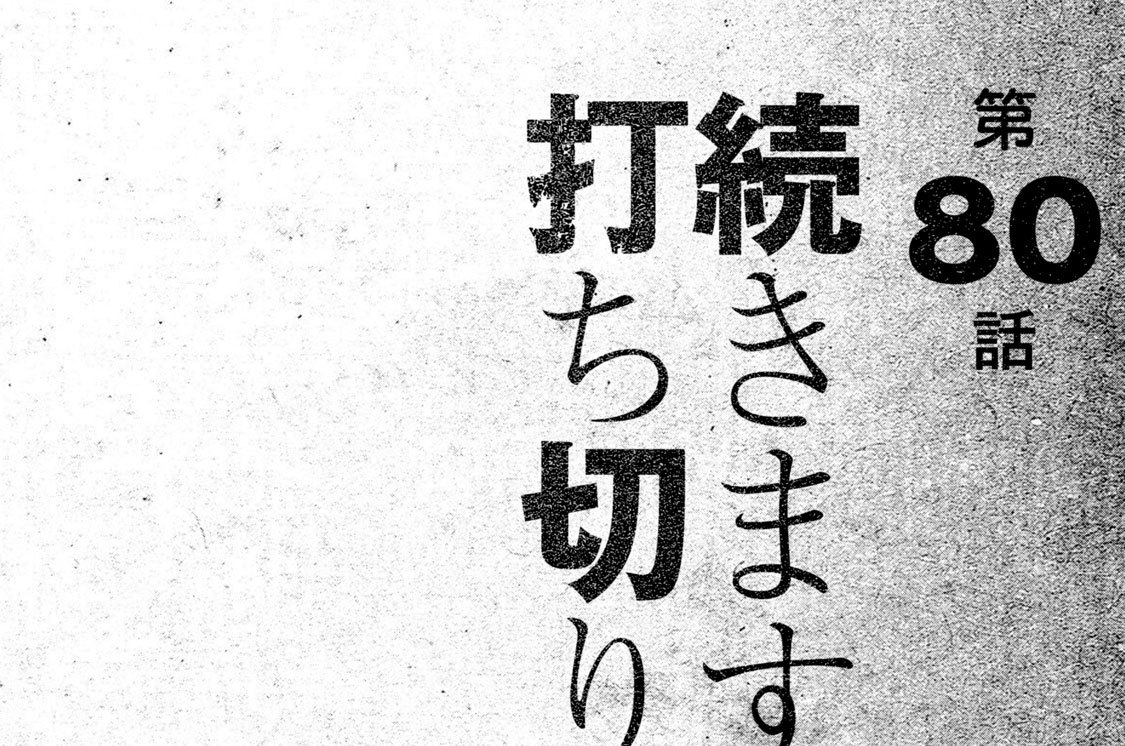 第80話
続きます
打ち切り